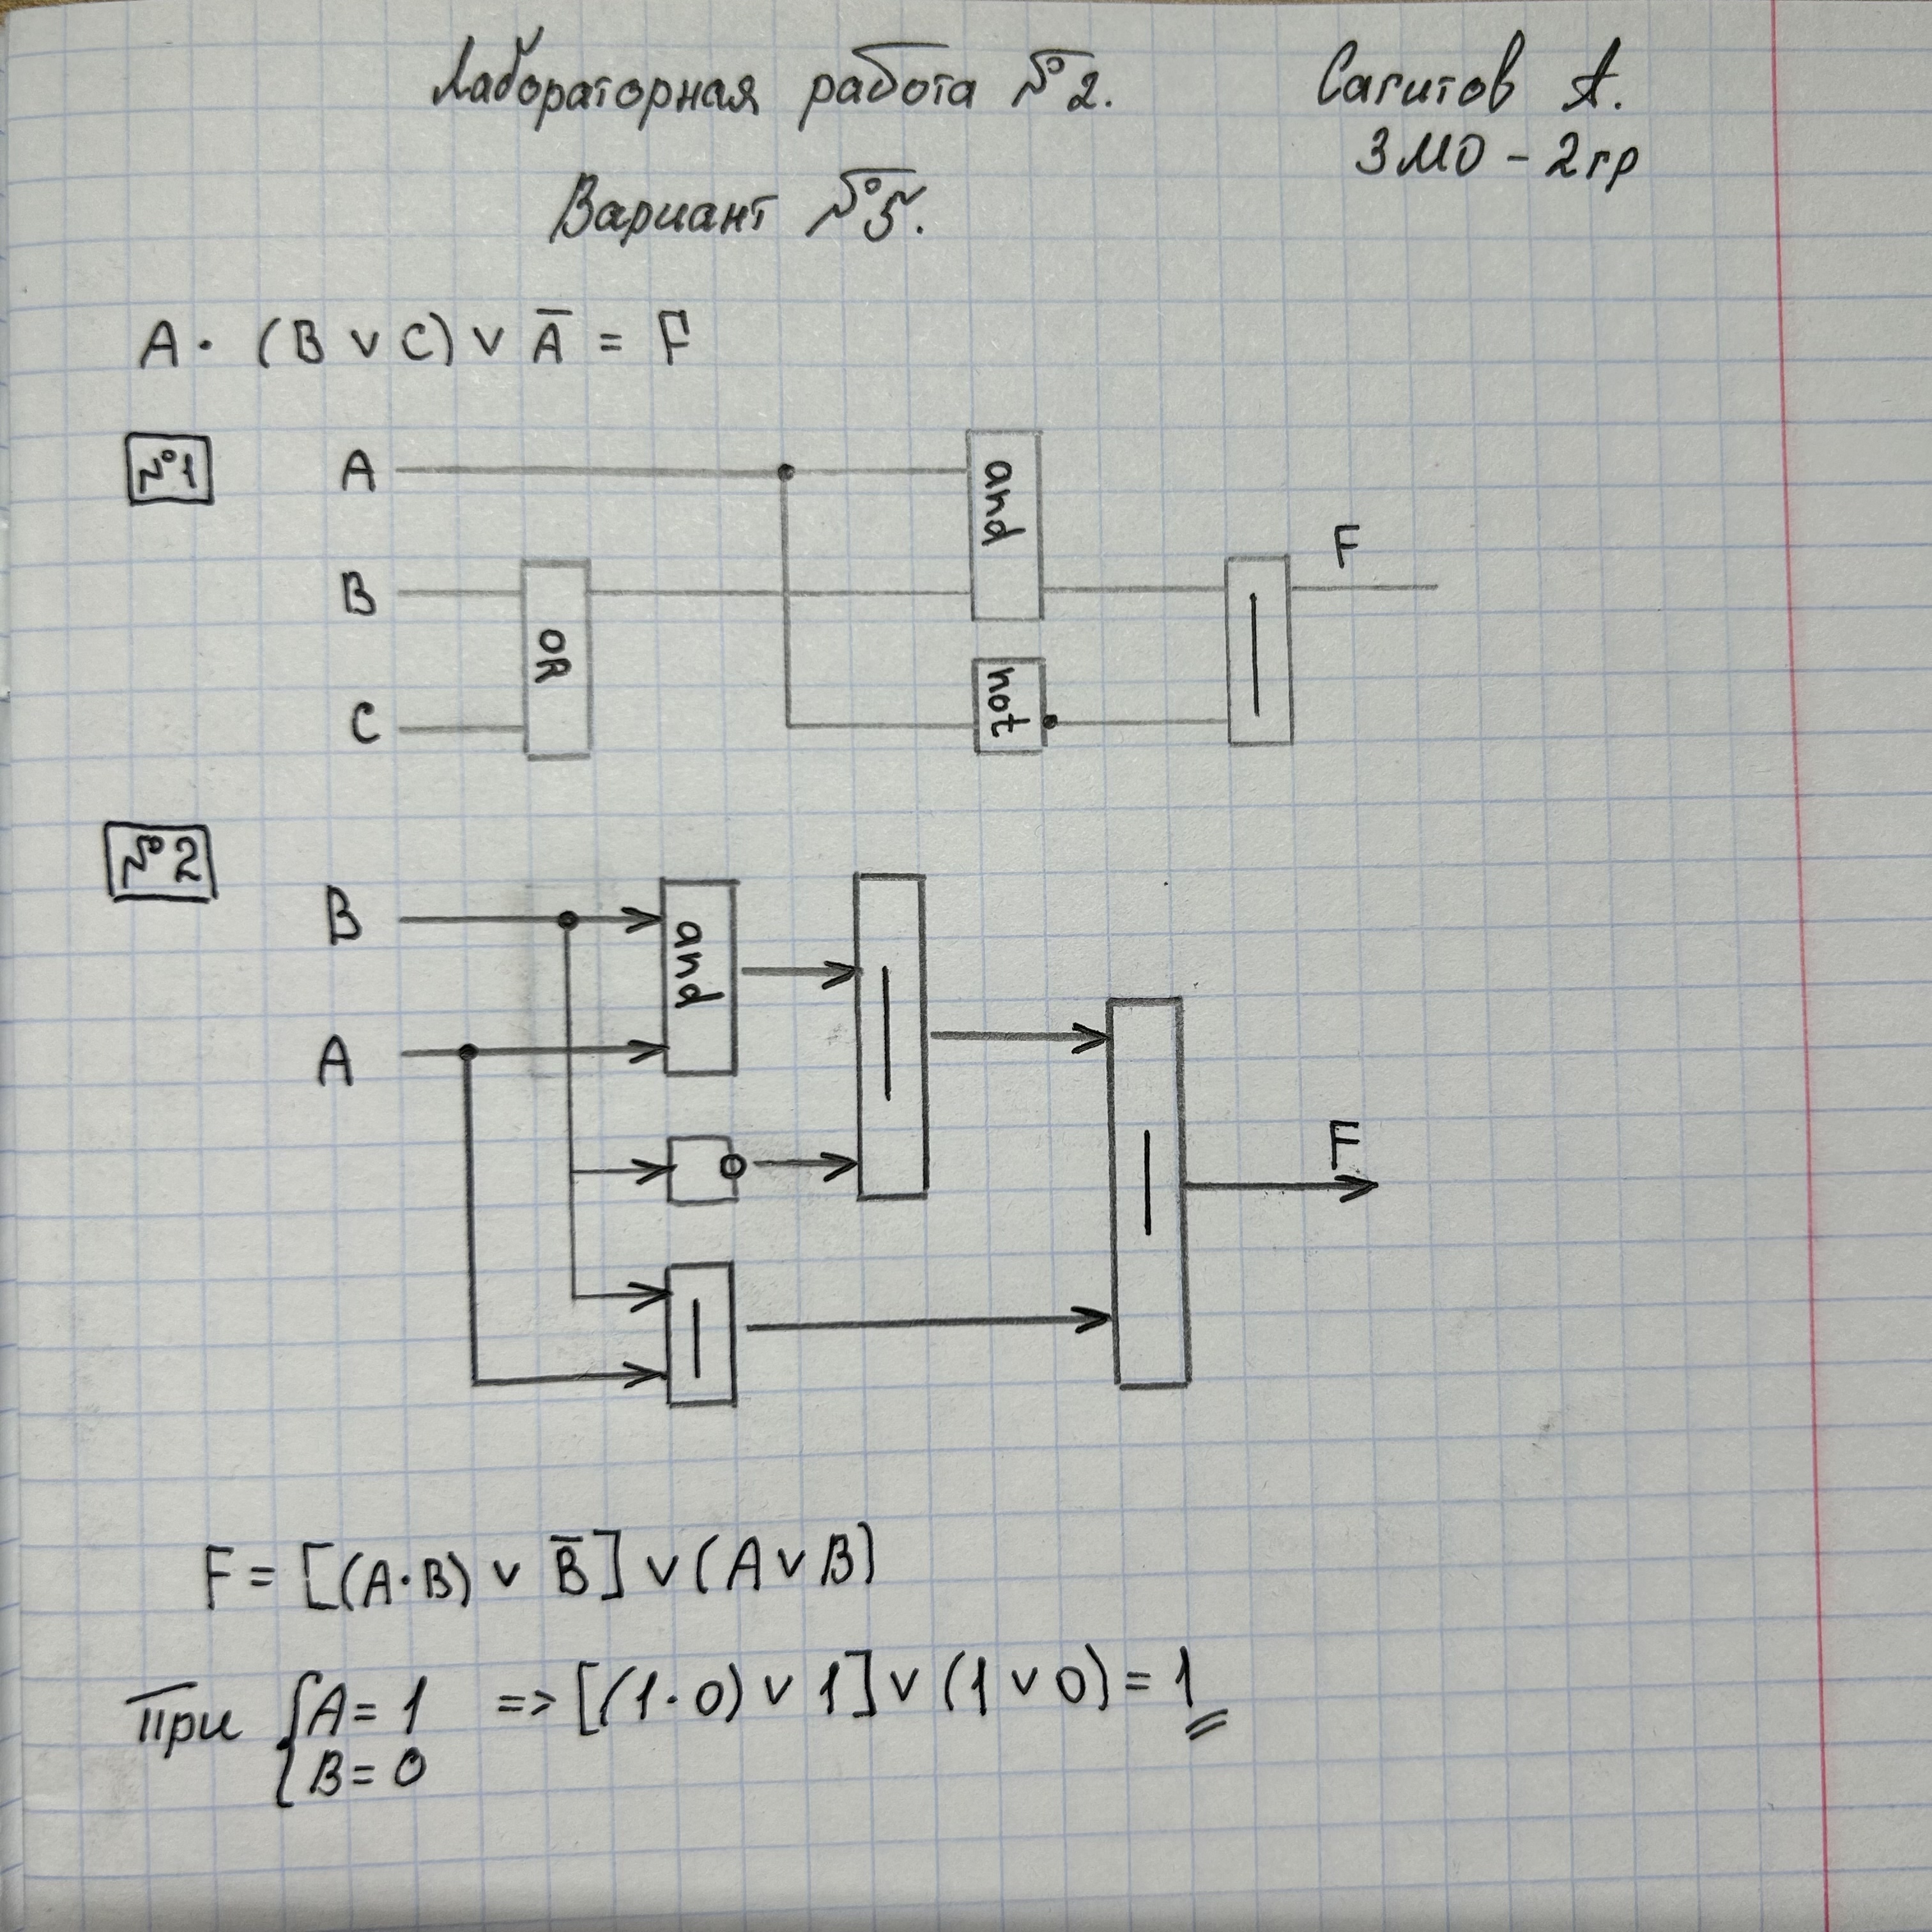 Лабораторная работа №2.
Сагитов А.
3 МО - 2 гр
Вариант №5.
A · (B ∨ C) ∨ A̅ = F
№1
A
and
F
B
OR
not
C
№2
B
and
A
F
F = [(A·B) ∨ B̅] ∨ (A ∨ B)
При { A = 1 => [(1·0) ∨ 1] ∨ (1 ∨ 0) = 1
B = 0